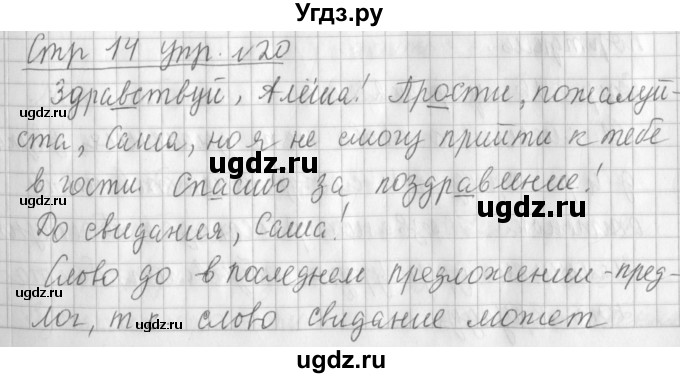 Угдз.ру
Стр 14 упр. №20
Здравствуй, Алёша! Прости, пожалуй-
ста, Саша, но я не смогу прийти к тебе
в гости. Спасибо за поздравление!
До свидания, Саша!
Слово до в последнем предложении - пред-
лог, т.к. слово свидание может
ugdz.ru
ugdz.ru
ugdz.ru
ugdz.ru
ugdz.ru
ugdz.ru
ugdz.ru
ugdz.ru
ugdz.ru